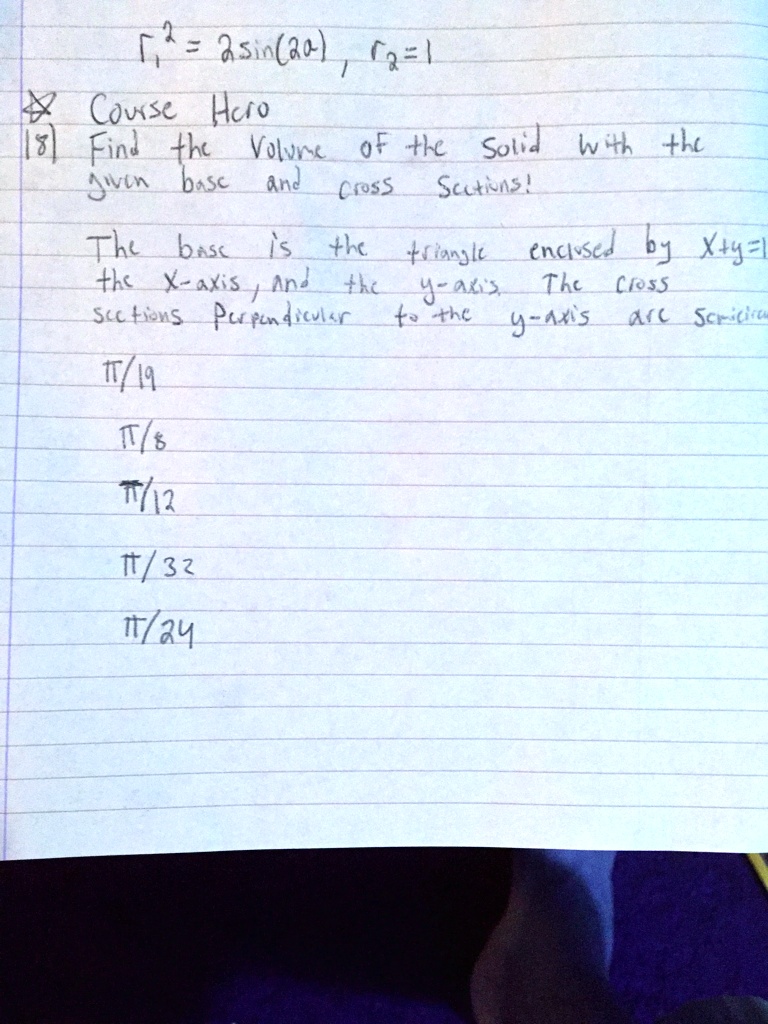 r₁² = 2sin(2a), r₂=1
☆ Course Hero
18) Find the Volume of the Solid with the
given base and cross Sections!
The base is the triangle enclosed by x+y=1
the X-axis, and the y-axis. The cross
sections Perpendicular to the y-axis are Semicircu
π/19
π/8
π/12
π/32
π/24